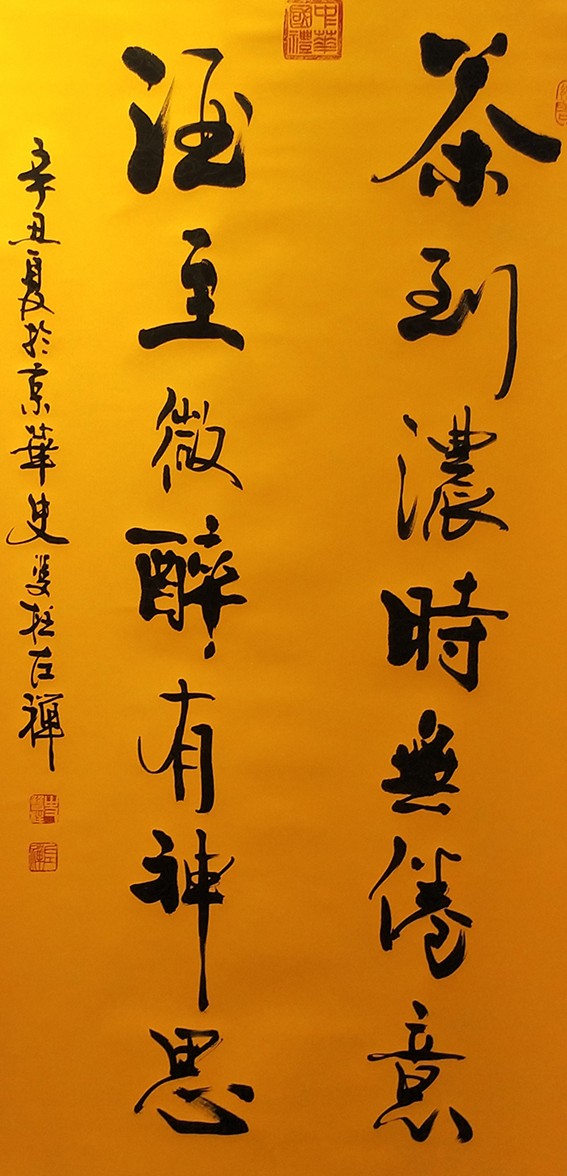 中華國禮
茶到濃時無倦意
酒至微醉有神思
辛丑夏於京華史雙柱左禪